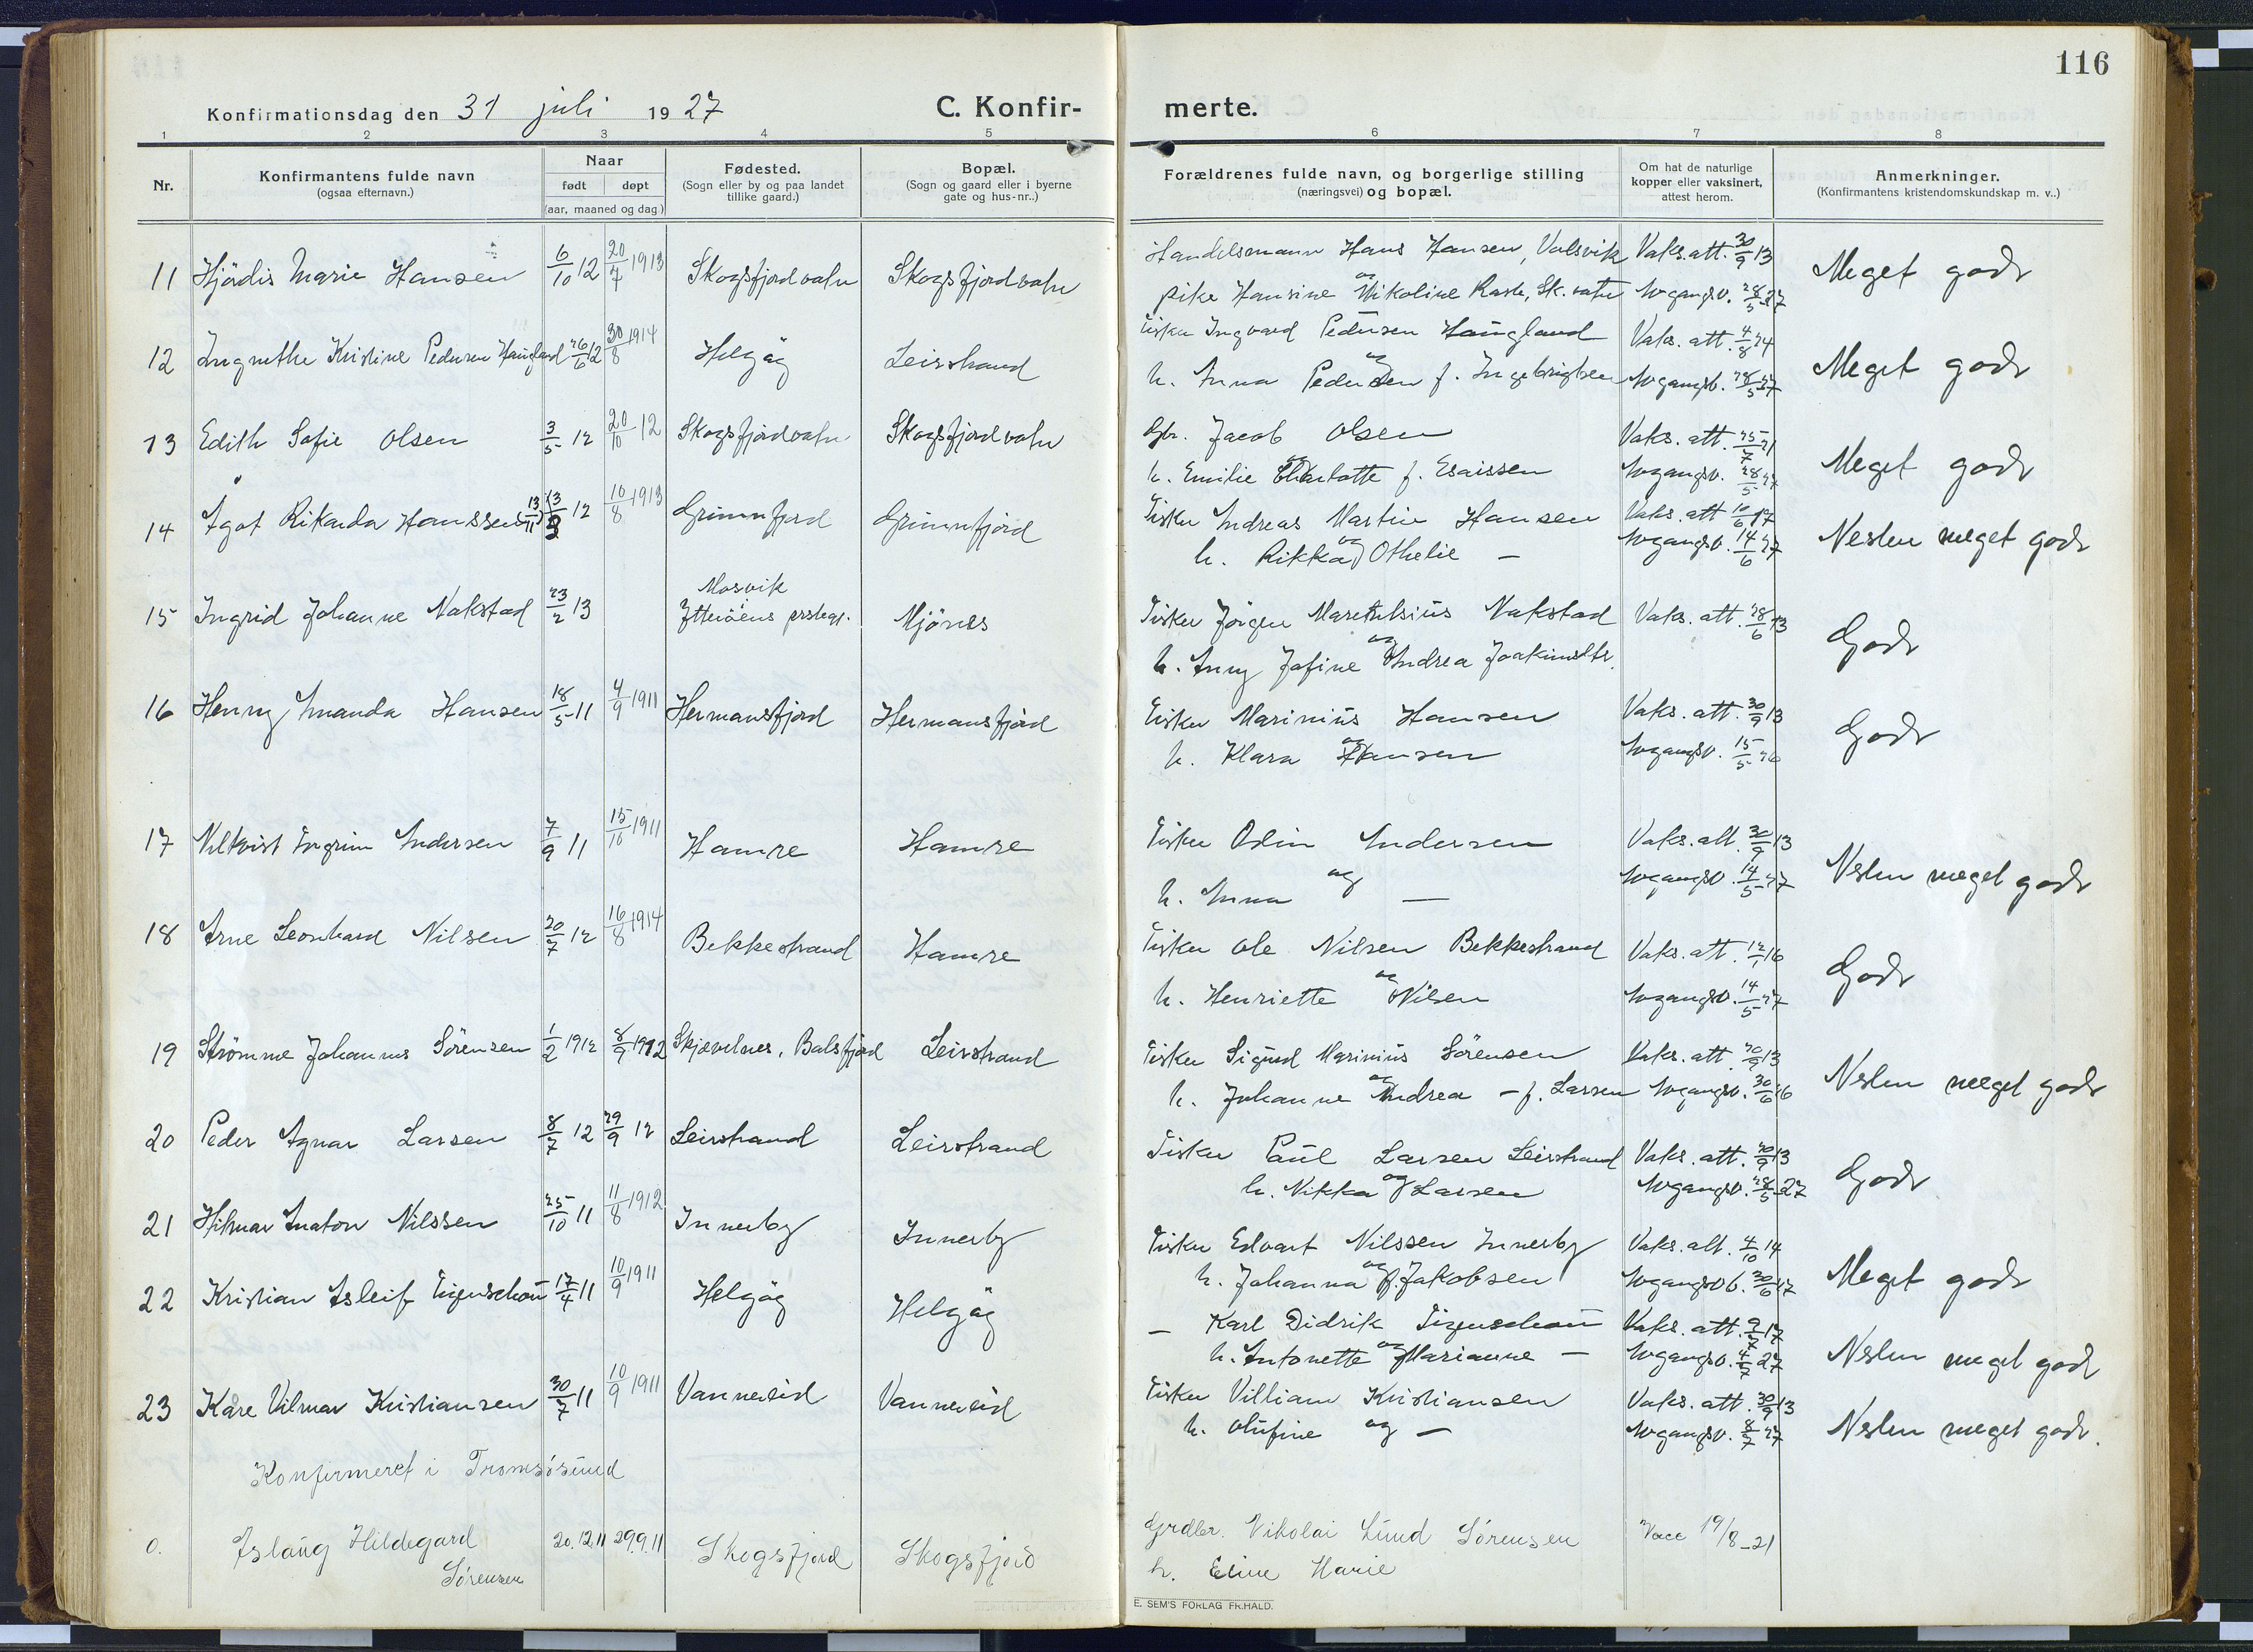 116
Konfirmationsdag den 31 juli 1927
C. Konfir-
merte.
1 2 3 4 5 6 7 8
Nr.
Konfirmantens fulde navn
(ogsaa efternavn.)
Naar
født døpt
(aar, maaned og dag)
Fødested.
(Sogn eller by og paa landet
tillike gaard.)
Bopæl.
(Sogn og gaard eller i byerne
gate og hus-nr..)
Forældrenes fulde navn, og borgerlige stilling
(næringsvei) og bopæl.
Om hat de naturlige
kopper eller vaksinert,
attest herom.
Anmerkninger.
(Konfirmantens kristendomskundskap m. v..)
11 Hjördis Marie Hansen 6/10 12 20/7 1913 Skogsfjordvatn Skogsfjordvatn
Handelsmann Hans Hansen, Valsvik Vaks. att. 30/9 13 Meget godt
og
pike Hansine Nikoline Rask, Sk.vatn 28/5 27
12 Ingrethe Kristine Pedersen Haugland 26/6 12 30/8 1914 Helgöy Leirstrand
Fisker Ingvard Pedersen Haugland Vaks. att. 4/8 24 Meget godt
og
h. Anna Pedersen f. Ingebrigtsen 28/5 27
13 Edith Sofie Olsen 3/5 12 20/10 12 Skogsfjordvatn Skogsfjordvatn
Gbr. Jacob Olsen Vaks. att. 25/7 21 Meget godt
og
h. Emilie Charlotte f. Esaissen 28/5 27
14 Agot Rikarda Hanssen 13/11 12 10/8 1913 Grunnfjord Grunnfjord
Fisker Andreas Martin Hansen Vaks. att 10/6 17 Nesten meget godt
og
h. Rikka Othelie — 14/6 27
15 Ingrid Johanne Nakstad 23/2 13 Mosvik
Ytteröens prstegj. Mjönes
Fisker Jörgen Nakstad Vaks. att. 28/6 13 Godt
og
h. Anny Jofine Andrea Joakimsdtr.
16 Henny Amanda Hansen 18/5 11 4/9 1911 Hermansfjord Hermansfjord
Fisker Marinius Hansen Vaks. att. 30/9 13 Godt
og
h. Klara Hansen 15/5 26
17 Ingrim Andersen 7/9 11 15/10 1911 Hamre Hamre
Fisker Odin Andersen Vaks. att. 30/9 13 Nesten meget godt
h. Anna og — 14/5 27
18 Arne Leonhard Nilsen 20/7 12 16/8 1914 Bekkestrand Hamre
Fisker Ole Nilsen Bekkestrand Vaks. att. 12/1 16 Godt
og
h. Henriette Nilsen 14/5 27
19 Strömme Johannes Sörensen 1/2 1912 8/9 1912 Skjævelnes, Balsfjord Leirstrand
Fisker Sigurd Marinius Sörensen Vaks. att. 20/9 13 Nesten meget godt
og
h. Johanne Andrea — f. Larsen 30/6 26
20 Peder Agnar Larsen 8/7 12 29/9 12 Leirstrand Leirstrand
Fisker Paul Larsen Leirstrand Vaks. att. 20/9 13 Godt
h. Nikka og Larsen 28/5 27
21 Hilmar Anaton Nilssen 25/10 11 11/8 1912 Innerby Innerby
Fisker Edvart Nilssen Innerby Vaks. att. 4/10 14 Meget godt
h. Johanna og f. Jakobsen 30/6 27
22 Kristian Asleif Figenschou 17/4 11 10/9 1911 Helgöy Helgöy
— Karl Didrik Figenschou Vaks. att. 9/7 17 Nesten meget godt
h. Antonette og Marianne — 4/7 27
23 Kåre Vilmar Kristiansen 30/7 11 10/9 1911 Vannereid Vannereid
Fisker Villiam Kristiansen Vaks. att. 30/9 13 Nesten meget godt.
h. Olufine og — 8/7 27
Konfirmeret i Tromsösund
0. Aslaug Hildegard 20.12.11 29.9.11 Skogsfjord Skogsfjord
Sörensen
Grdbr. Nikolai Lund Sörensen Vacc 19/8-21
h. Eline Marie
E. SEM'S FORLAG FR.HALD.